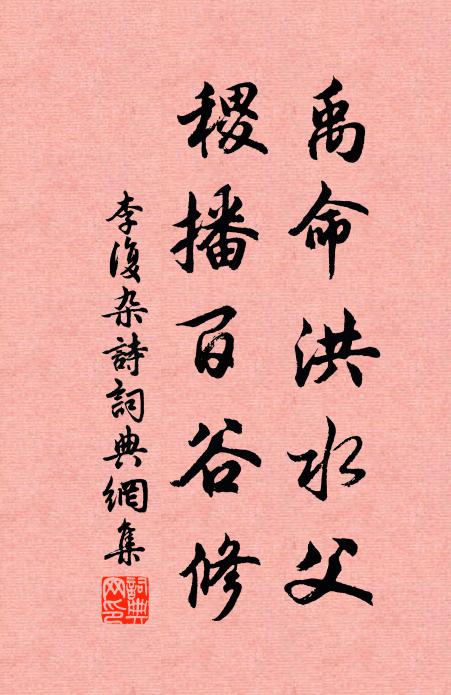 禹命洪水父
稷播百谷修
李復杂詩詞典網集
詞典网印